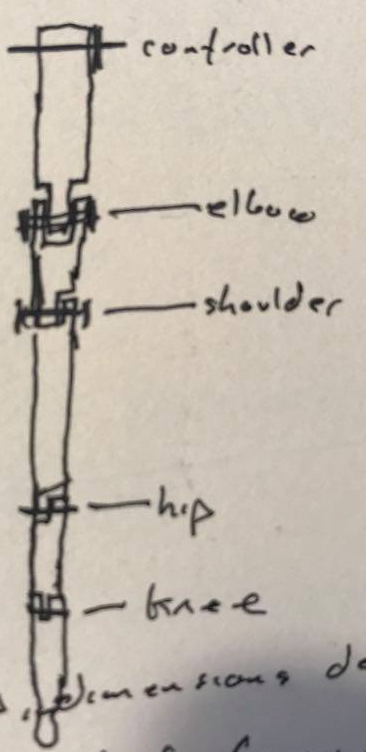 controller
elbow
shoulder
hip
knee
dimensions